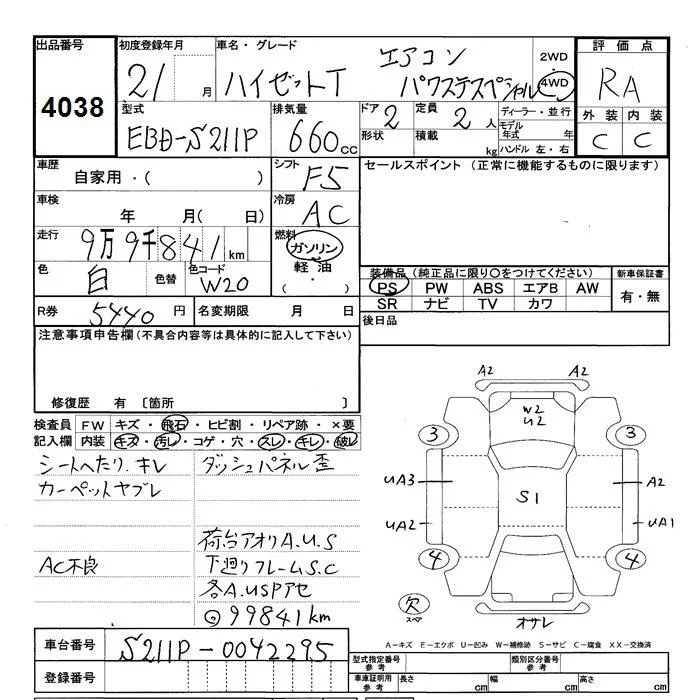 出品番号
4038
初度登録年月
21 月
車名・グレード
ハイゼットT エアコン パワステスペシャル
2WD
・
4WD
評価点
RA
外装 内装
C C
型式
EBD-S211P
排気量
660 cc
ドア 2
形状
定員 2 人
積載 kg
ディーラー・並行
モデル年式 年
ハンドル 左・右
車歴
自家用・( )
シフト
F5
車検
年 月( 日)
冷房
AC
走行
9万9千841km
燃料
ガソリン
・
軽油
( ・ )
色
白
色替
色コード
W20
R券 5440 円
名変期限 月 日
セールスポイント (正常に機能するものに限ります)
装備品 (純正品に限り○をつけてください)
PS PW ABS エアB AW
SR ナビ TV カワ
新車保証書
有・無
後日品
注意事項申告欄(不具合内容等は具体的に記入して下さい)
修復歴 有 〔箇所 〕
検査員記入欄
FW キズ・飛石・ヒビ割・リペア跡・×要
内装 キズ・汚レ・コゲ・穴・スレ・キレ・破レ
シートへたり、キレ
カーペットヤブレ
AC不良
ダッシュパネル歪
荷台アオリA.U.S
下廻りフレームS.C
各A.USPアセ
◎99841km
A2 A2
W2
U2
3 3
UA3 A2
S1
UA2 UA1
4 4
欠
スペア
オサレ
A-キズ E-エクボ U-凹み W-補修跡 S-サビ C-腐食 XX-交換済
車台番号
S211P-0042295
登録番号
型式指定番号
参考
類別区分番号
参考
車庫証明用
参考
長さ cm
幅 cm
高さ cm